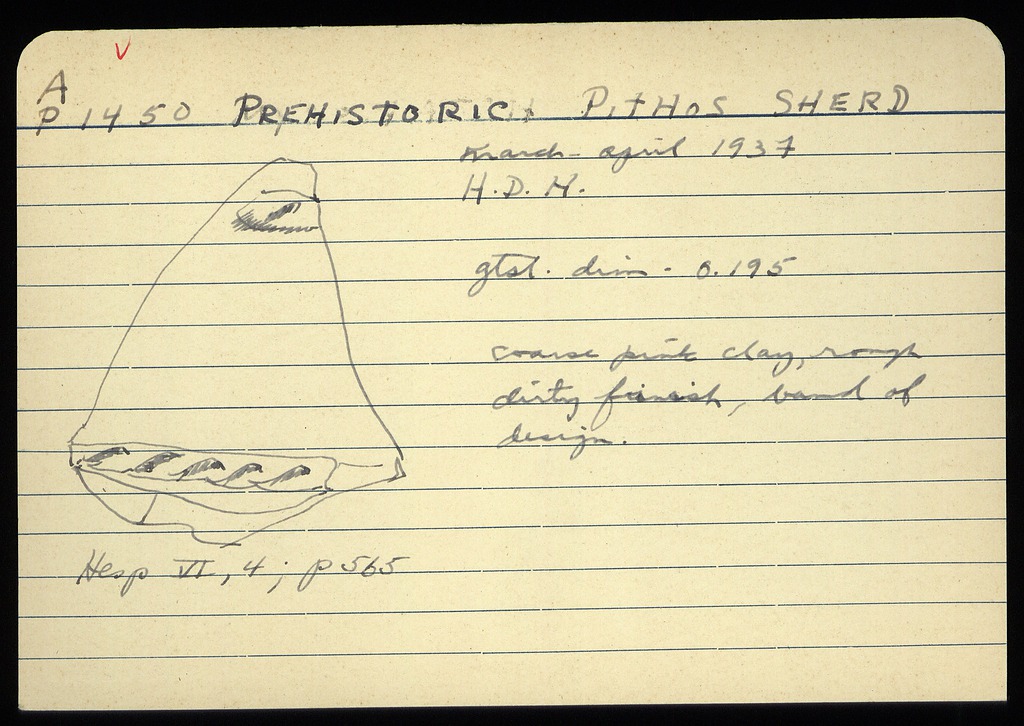 V
A
P 1450 PREHISTORIC: PITHOS SHERD
March - April 1937
H.D.H.
gtst. dim - 0.195
coarse pink clay, rough
dirty finish, band of
design.
Hesp VI, 4; p 565